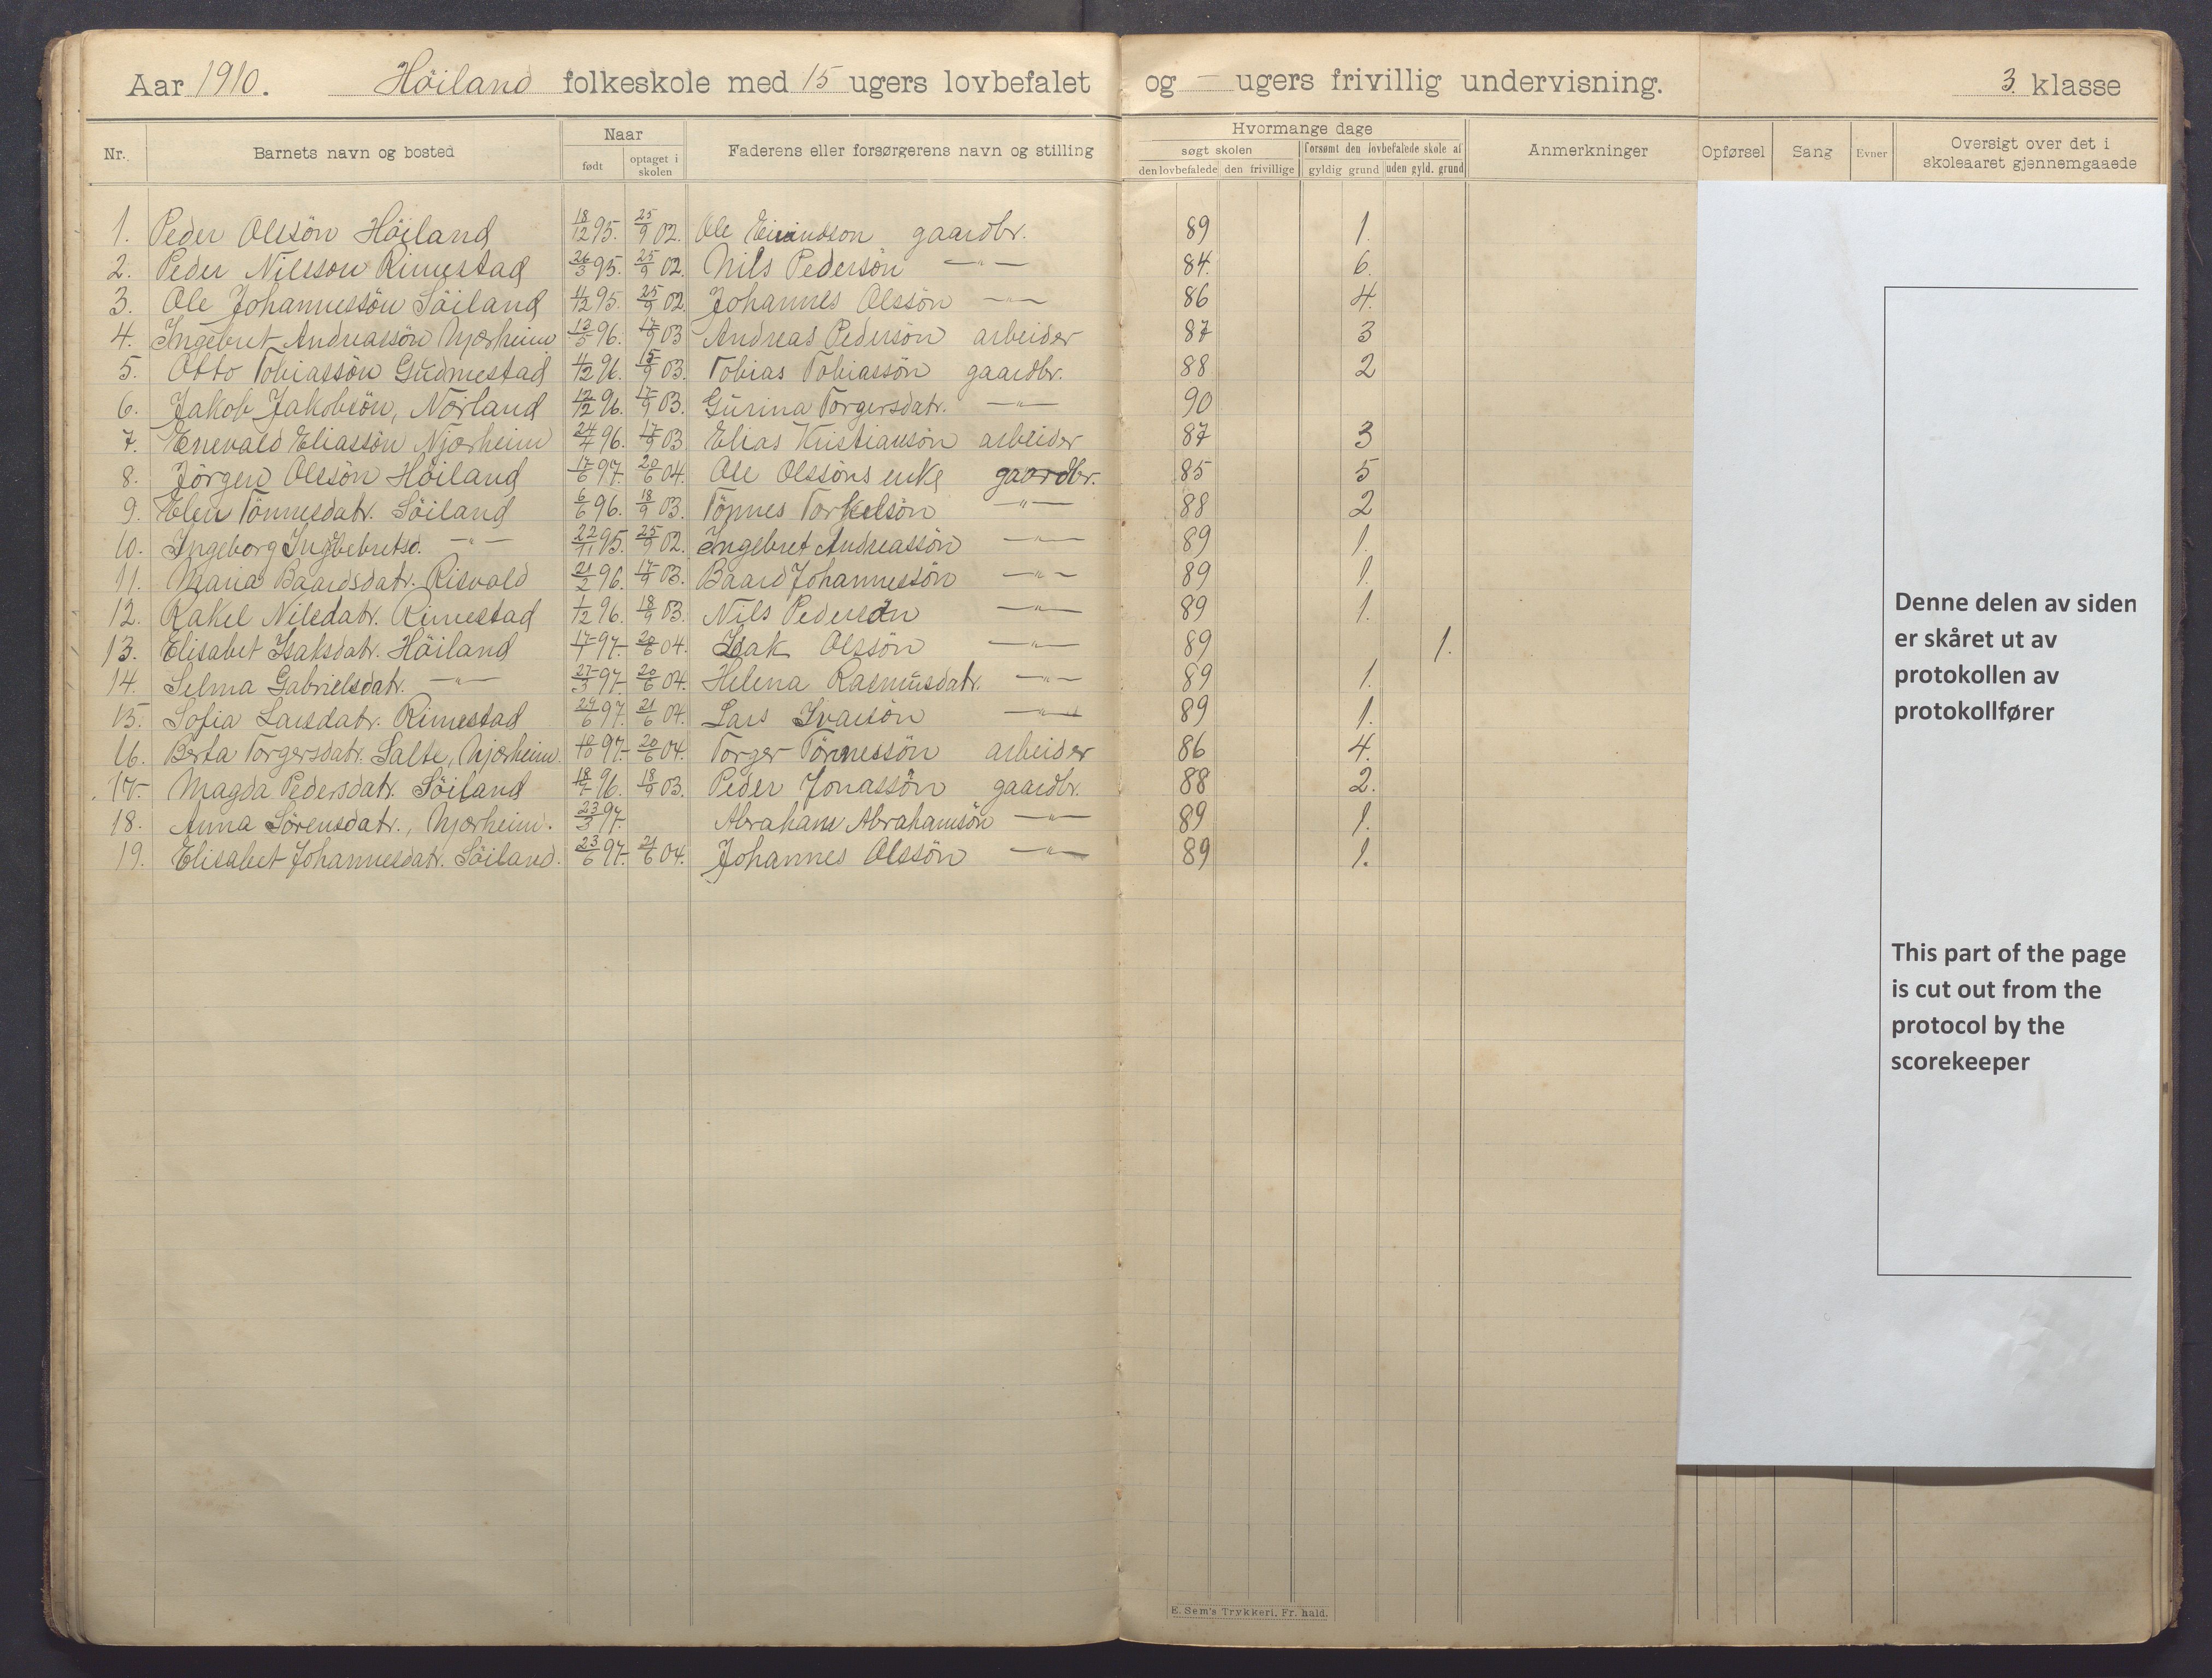 Aar 1910. Höiland folkeskole med 15 ugers lovbefalet og — ugers frivillig undervisning. 3. klasse
Nr. Barnets navn og bosted Naar født optaget i skolen Faderens eller forsørgerens navn og stilling Hvormange dage søgt skolen den lovbefalede den frivillige forsømt den lovbefalede skole af gyldig grund uden gyld. grund Anmerkninger Opførsel Sang Evner Oversigt over det i skoleaaret gjennemgaaede
1. Peder Olssön Höiland 18/12 95. 25/9 02. Ole gaardbr. 89 1.
2. Peder Nilsson Rimestad 26/3 95. 25/9 02. Nils Pedersön —"— 84. 6.
3. Ole Johannessön Söiland 11/12 95. 25/9 02. Johannes Olssön —"— 86 4.
4. Ingebret Andreassön Njærheim 13/5 96. 17/9 03 Andreas Pedersön arbeider 87 3
5. Otto Tobiassön Gudmestad 11/12 96. 15/9 03. Tobias Tobiassön gaardbr. 88 2
6. Jakob Jakobsön, Nörland 12/12 96. 17/9 03. Gurina Torgersdatr. —"— 90
7. Enevald Eliassön Njærheim 24/4 96. 17/9 03 Elias Kristiansön arbeider 87 3
8. Jörgen Olssön Höiland 17/6 97. 20/6 04. Ole Olssöns enke gaardbr. 85 5
9. Elen Tönnesdatr. Söiland 6/6 96. 18/9 03. Tönnes Torkelsön —"— 88 2
10. Ingeborg Ingebretsd. —"— 22/11 95. 25/9 02. Ingebret Andreassön —"— 89 1.
11. Maria Baardsdatr. Risvold 21/2 96. 17/9 03. Baard Johannessön —"— 89 1.
12. Rakel Nilsdatr. Rimestad 1/12 96. 18/9 03. Nils Pedersön —"— 89 1.
13. Elisabet Isaksdatr. Höiland 17/1 97. 20/6 04. Isak Olssön —"— 89 1.
14. Selma Gabrielsdatr. —"— 27/3 97. 20/6 04. Helena Rasmusdatr. —"— 89 1.
15. Sofia Larsdatr. Rimestad 97. 21/6 04. Lars Ivarsön —"— 89 1.
16. Berta Torgersdatr. Salte, Njærheim. 97. 20/6 04. Torger Tönnessön arbeider 86 4.
17. Magda Pedersdatr. Söiland 96. 18/9 03. Peder Jonassön gaardbr. 88 2.
18. Anna Sörensdatr., Njærheim. 23/3 97. Abraham Abrahamsön —"— 89 1.
19. Elisabet Johannesdatr. Söiland. 23/6 97. 21/6 04. Johannes Olssön —"— 89 1.
Denne delen av siden
er skåret ut av
protokollen av
protokollfører
This part of the page
is cut out from the
protocol by the
scorekeeper
E. Sem's Trykkeri. Fr. hald.